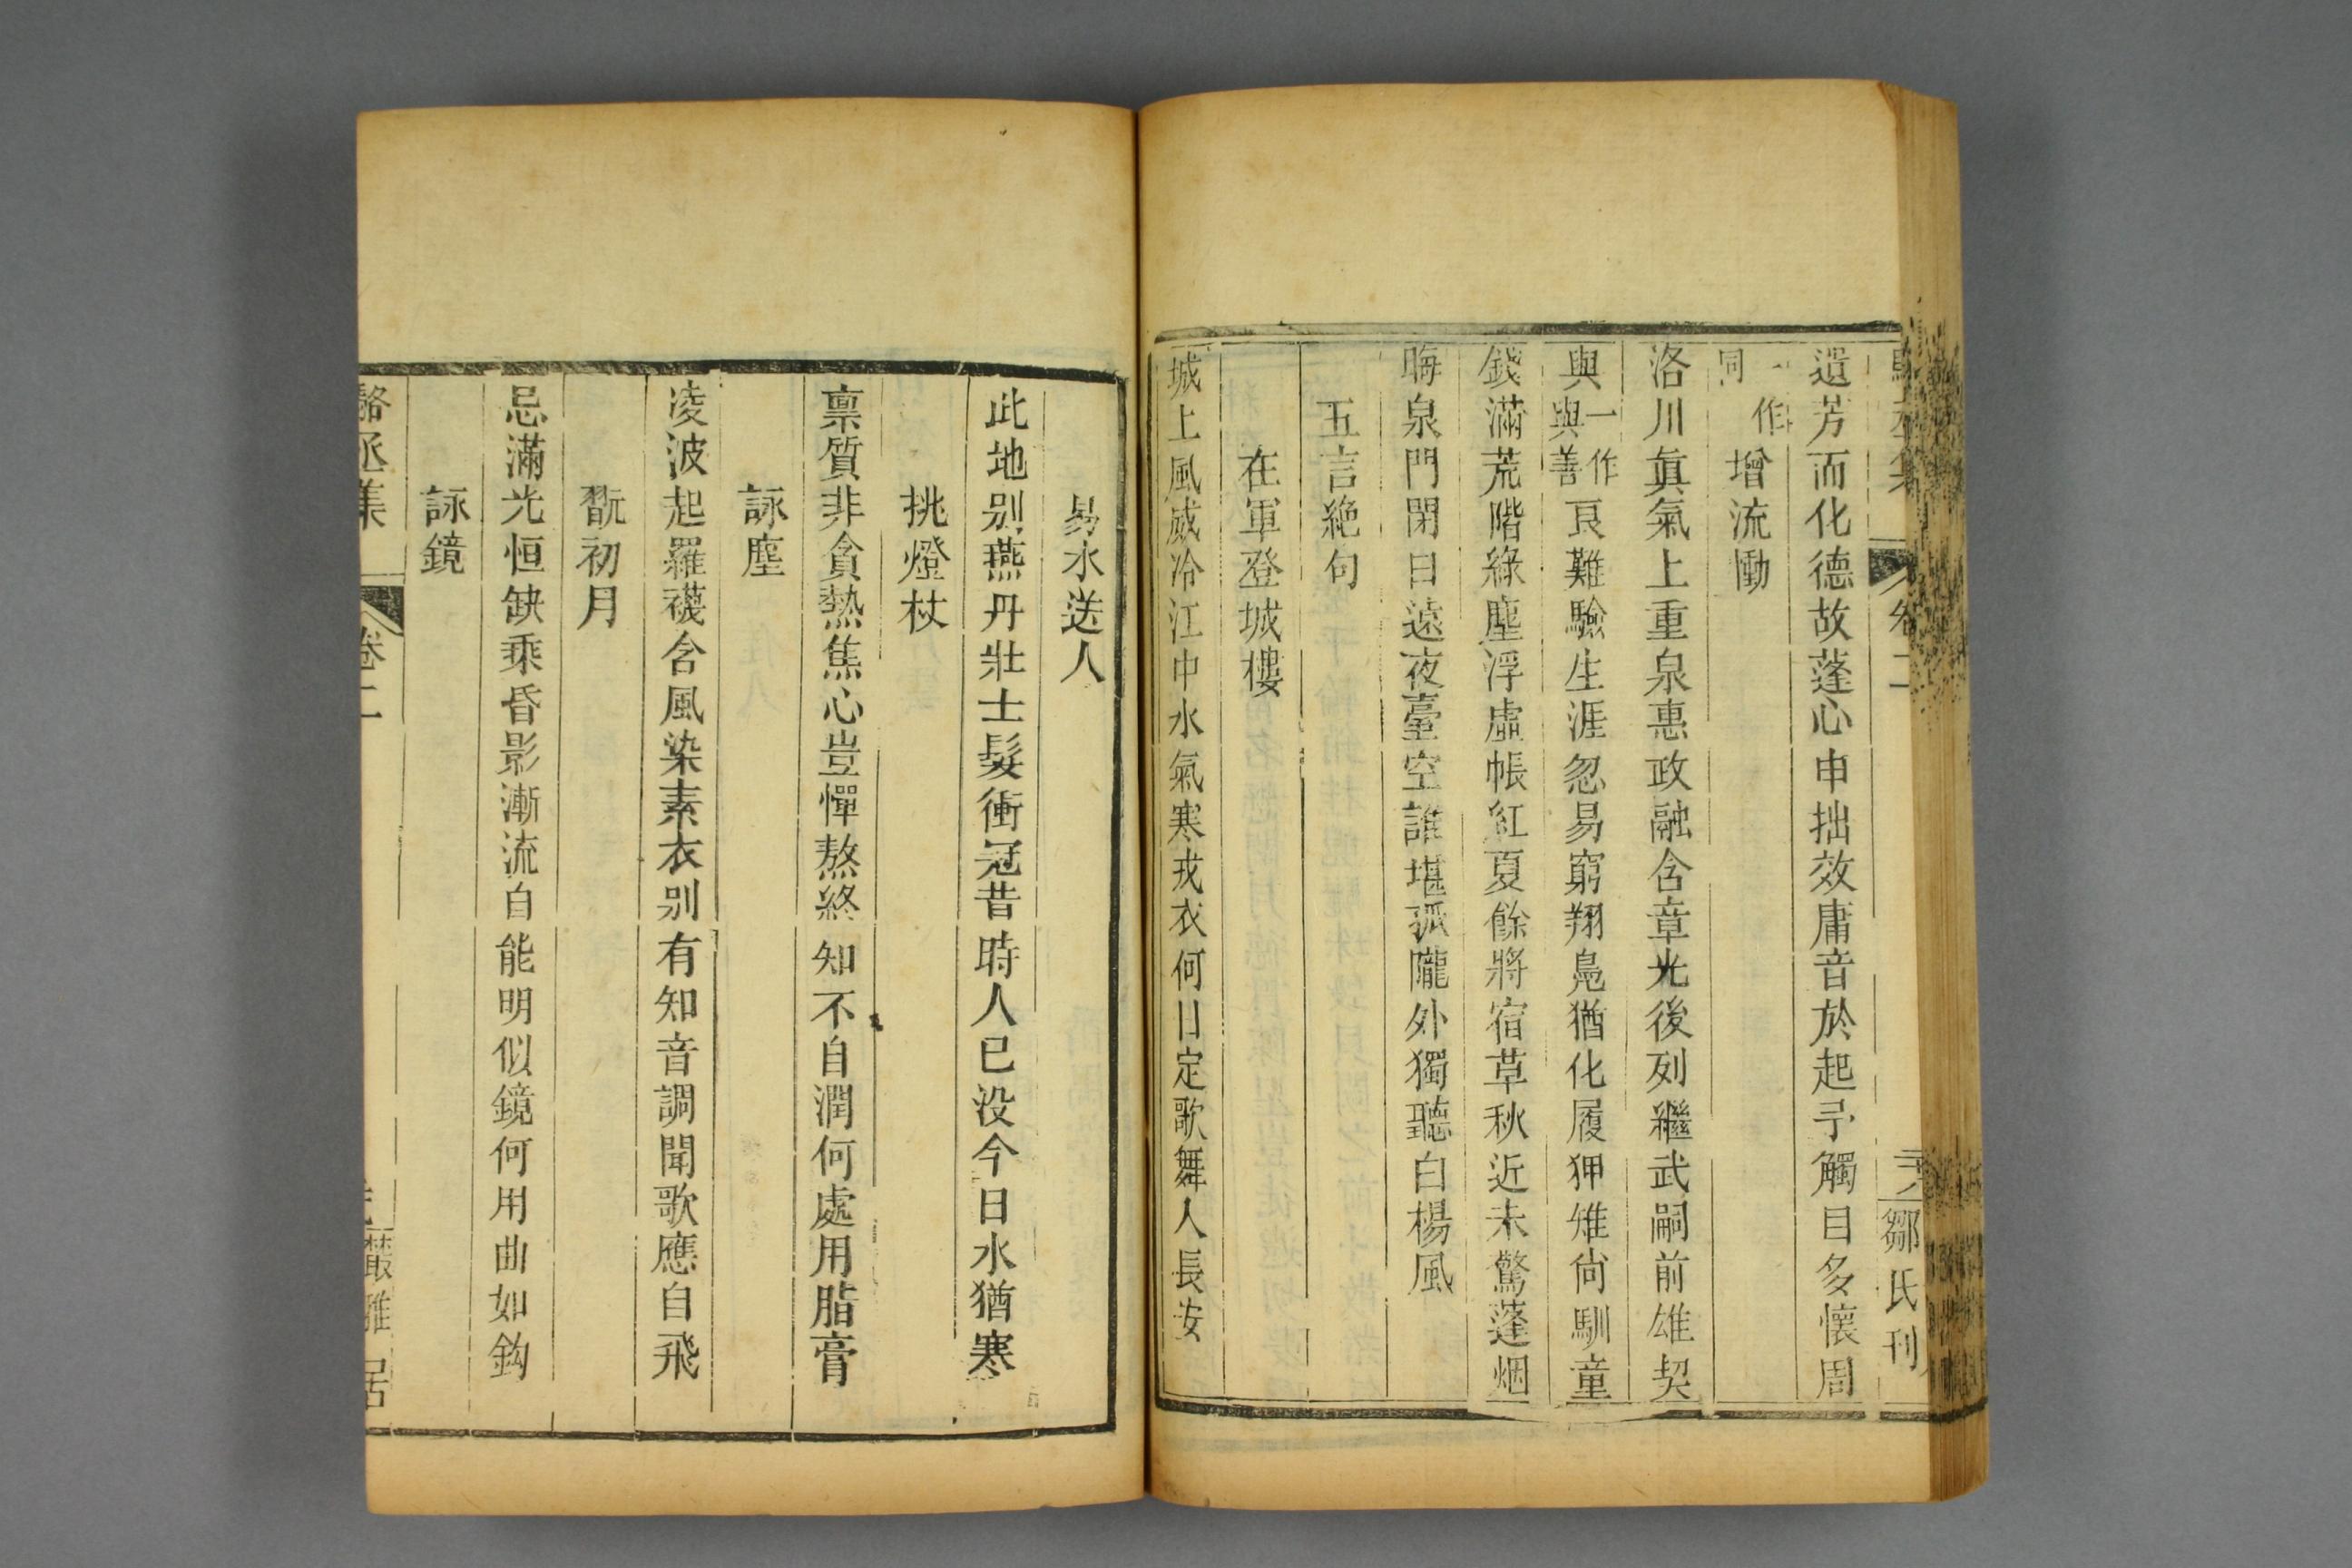 卷二
鄒氏刊
遺芳而化德故蓬心申拙效庸音於起予觸目多懷周
一作同增流慟
洛川眞氣上重泉惠政融含章光後列繼武嗣前雄契
與一作與善良難驗生涯忽易窮翔鳧猶化履狎雉尙馴童
錢滿荒階綠塵浮虛帳紅夏餘將宿草秋近未驚蓬烟
晦泉門閉日遠夜臺空誰堪孤隴外獨聽白楊風
五言絶句
在軍登城樓
城上風威冷江中水氣寒戎衣何日定歌舞入長安
易水送人
此地别燕丹壯士髮衝冠昔時人已没今日水猶寒
挑燈杖
禀質非貪熱焦心豈憚熬終知不自潤何處用脂膏
詠塵
凌波起羅襪含風染素衣别有知音調聞歌應自飛
翫初月
忌滿光恒缺乘昏影漸流自能明似鏡何用曲如鈎
詠鏡
駱丞集
卷二
叢雅居